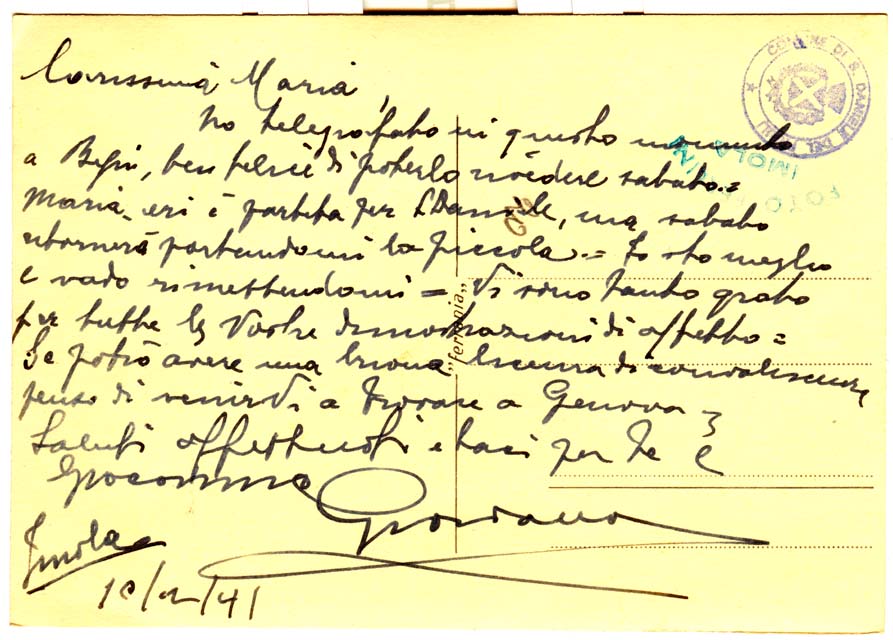 Carissima Maria,
ho telegrafato in questo momento
a Bepi, ben felice di poterlo rivedere sabato =
Maria ieri è partita per S. Daniele, ma sabato
ritornerà portandomi la piccola = Io sto meglio
e vado rimettendomi = Vi sono tanto grato
per tutte le Vostre dimostrazioni di affetto =
Se potrò avere una buona licenza di convalescenza
penso di venirVi a trovare a Genova =
Saluti affettuosi e baci per Te e
Giacomino
Giordano
Imola
10/2/41
"ferrania"
COMUNE DI S. DANIELE DEL
FOTO
IMOLA